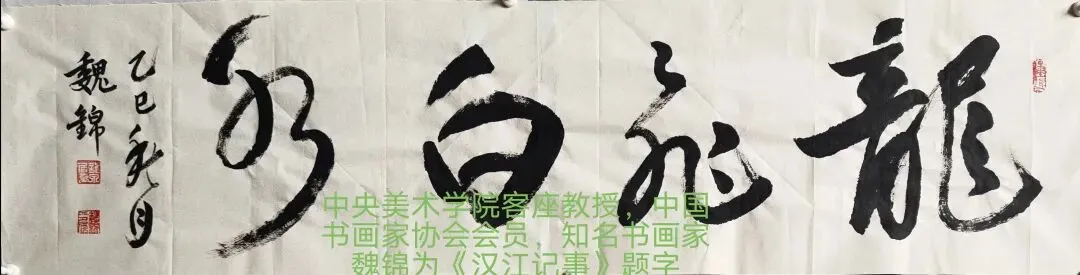 龍飛白水
乙巳秋月
魏錦
中央美术学院客座教授，中国
书画家协会会员，知名书画家
魏锦为《汉江记事》题字